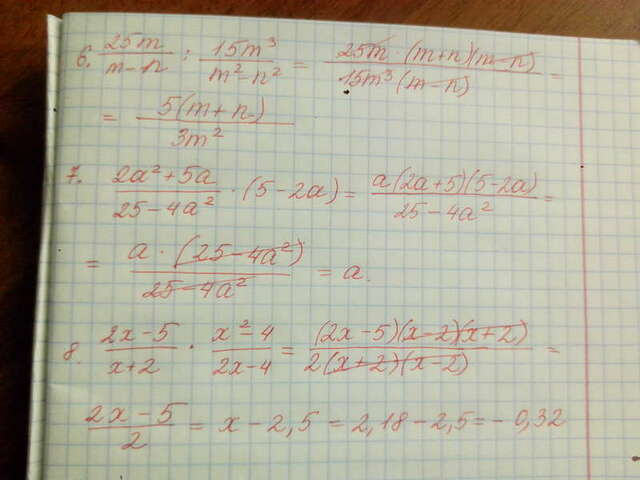 6. 25m/(m-n) : 15m³/(m²-n²) = 25m · (m+n)(m-n)/(15m³(m-n)) =
= 5(m+n)/(3m²)
7. (2a²+5a)/(25-4a²) · (5-2a) = a(2a+5)(5-2a)/(25-4a²) =
= a · (25-4a²)/(25-4a²) = a.
8. (2x-5)/(x+2) · (x²-4)/(2x-4) = (2x-5)(x-2)(x+2)/(2(x+2)(x-2)) =
(2x-5)/2 = x-2,5 = 2,18-2,5 = -0,32